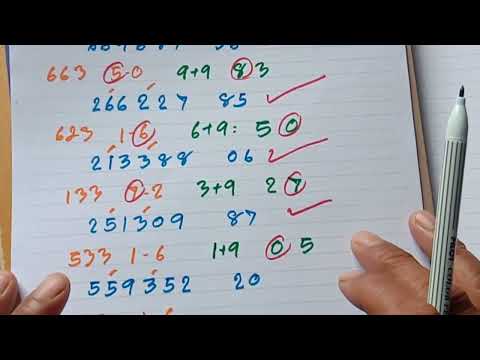 663 5-0 9+9 83
266227 85
623 1-6 6+9: 50
213388 06
133 7-2 3+9 27
251309 87
533 1-6 1+9 05
559352 20